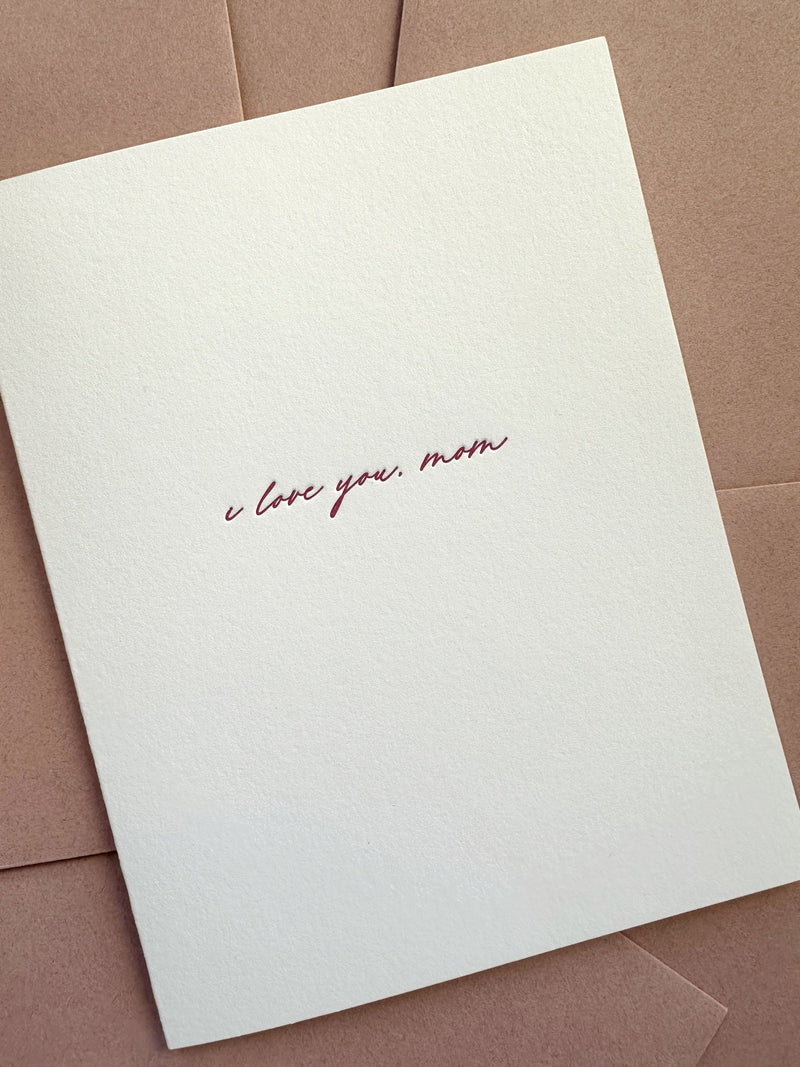 i love you, mom